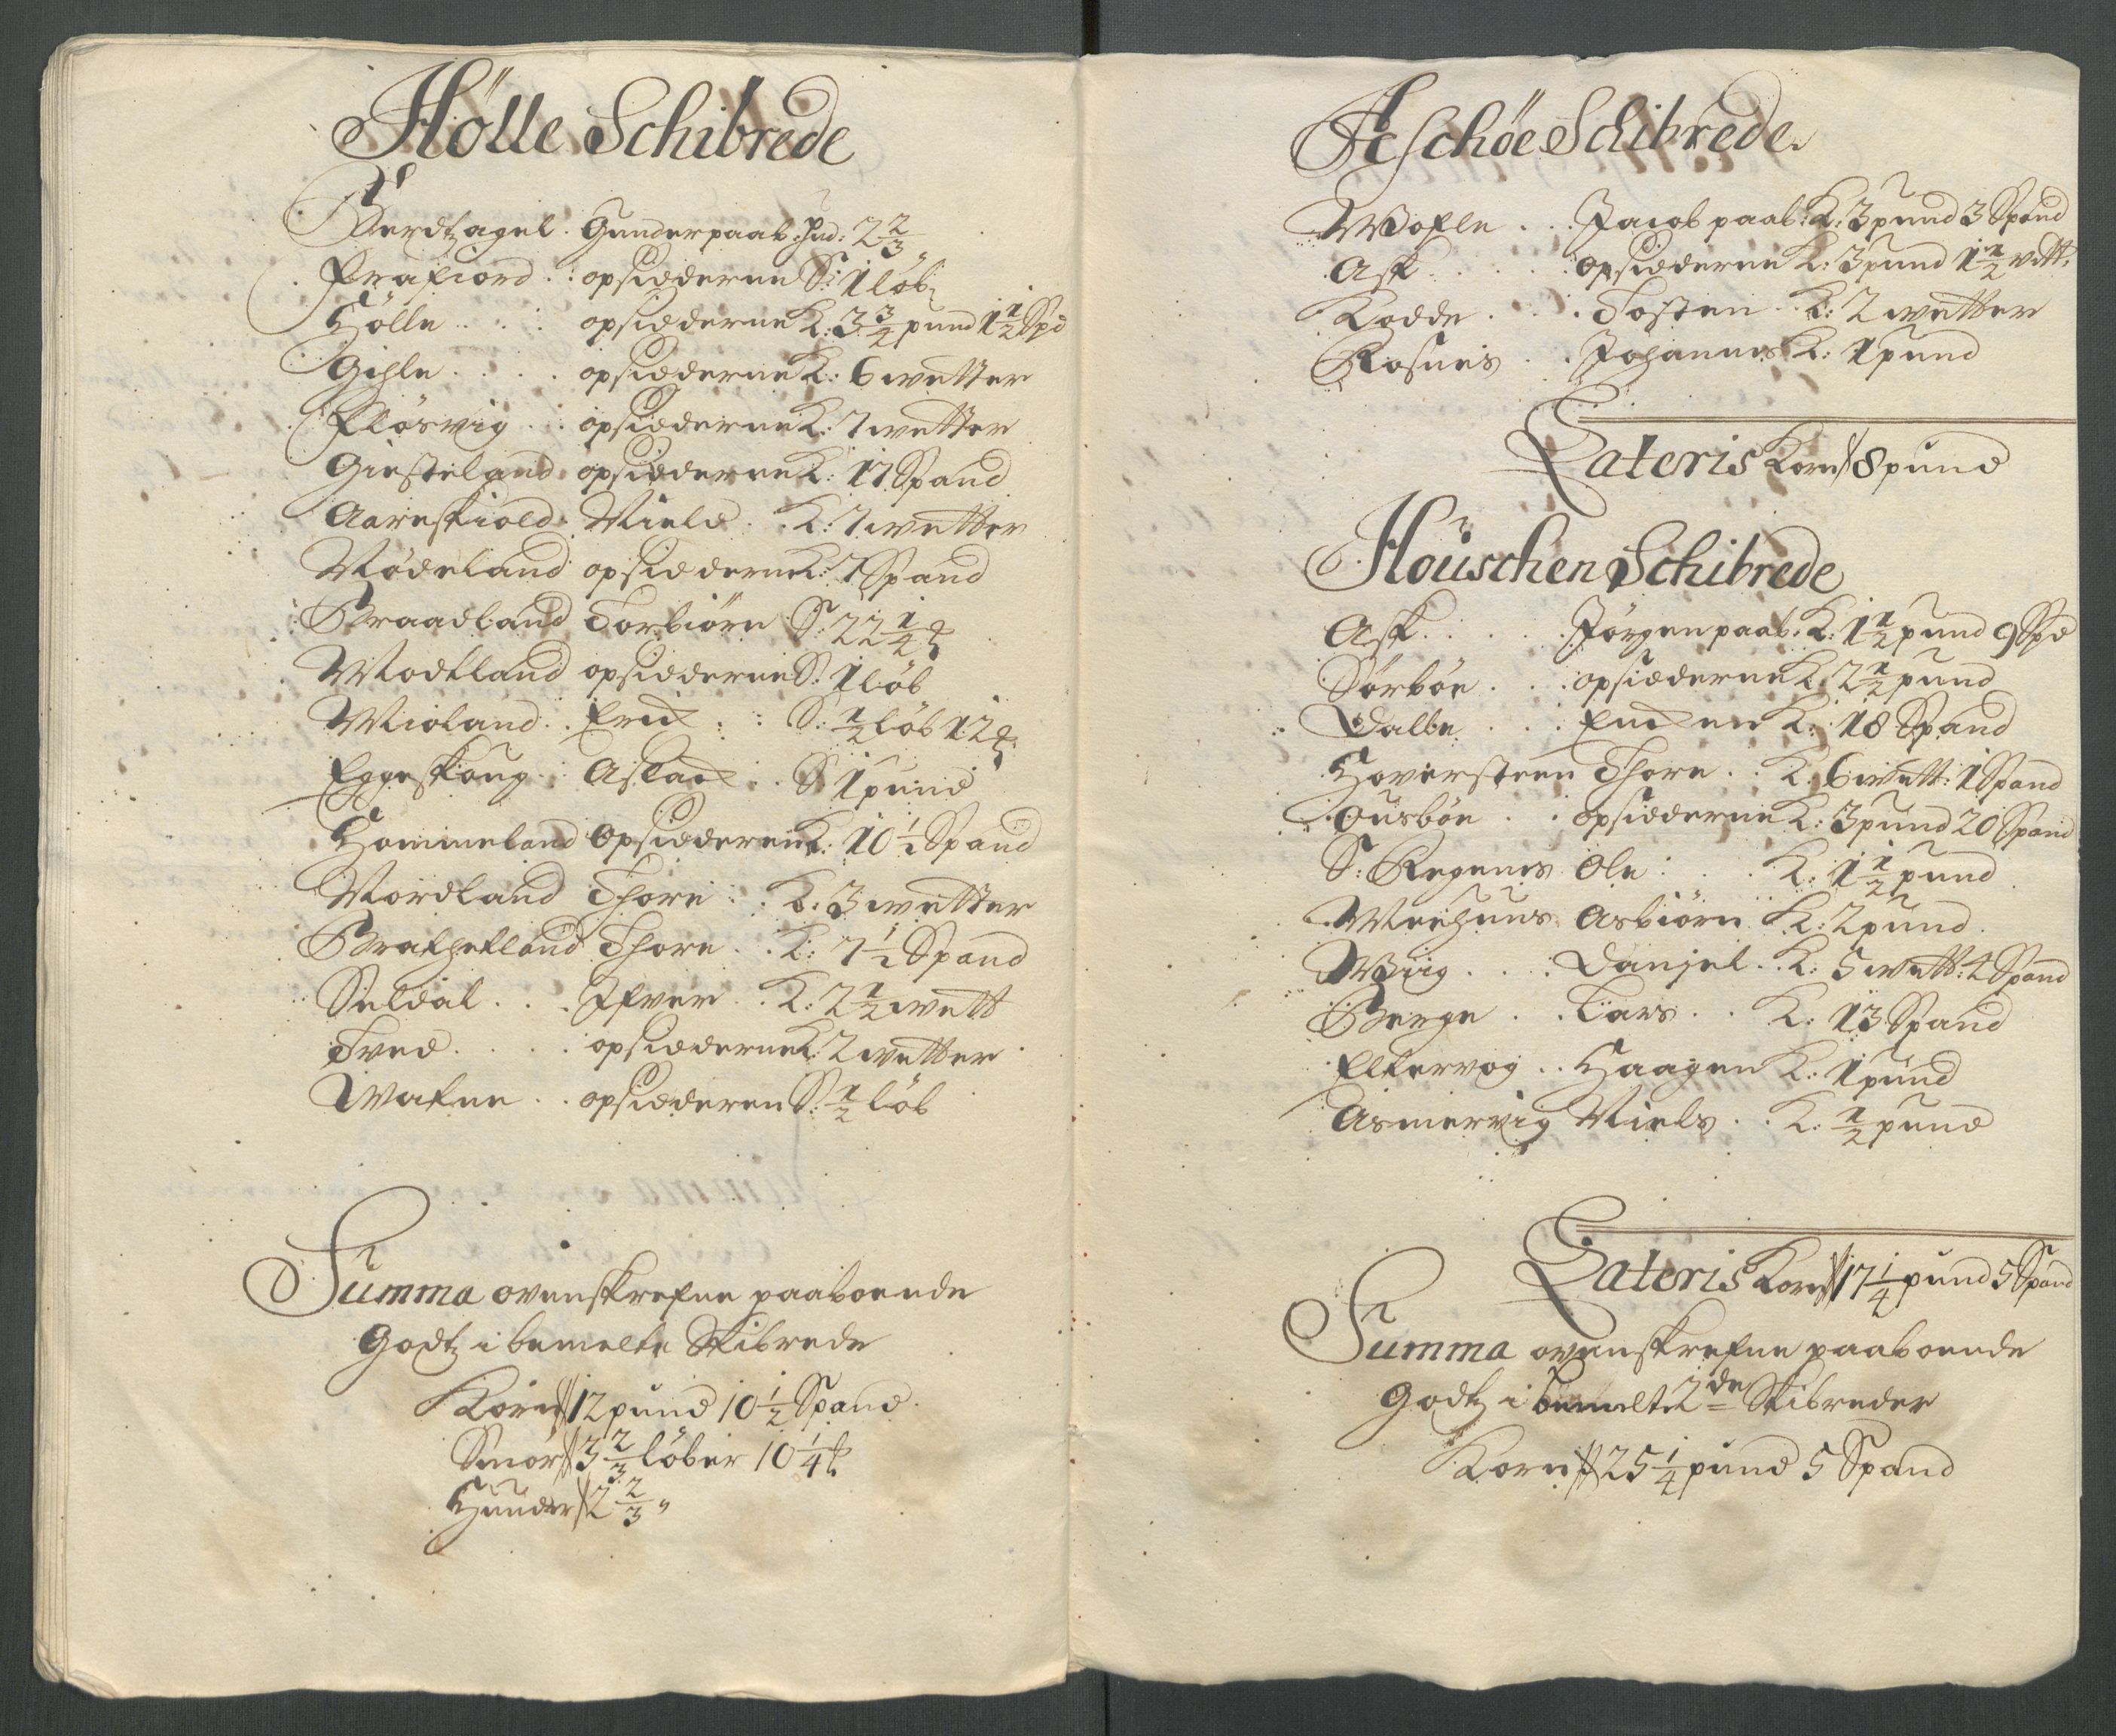 Hölle Schibrede
Berdtz agel . Gunder paab: Hud: 2 2/3 "
Frafiord . . opsidderne S: 1 löb
Hölle . . . . opsidderne K: 3 3/4 pund 1 1/2 Spd
Gihle . . . . opsidderne K: 6 wetter
Flörvig . . opsidderne K: 7 wetter
Giesteland opsidderne K: 17 Spand
Aareskiold . Niels . K: 7 wetter
Nödeland opsidderne K: 7 Spand
Braadland Torbiörn S: 22 1/4 ℔
Modtland opsidderne S: 1 löb
Mioland . . Erich . . S: 1/2 löb 12 ℔
Eggeskoug . . Aslach . . S: 1 pund
Hommeland opsidderne K: 10 1/2 Spand
Nordland Thore . . K: 3 wetter
Brathetland Thore . . K: 7 1/2 Spand
Seldal . . . Ifver . . K: 2 1/2 wett
Tved . . . . opsidderne K: 2 wetter
Watne . . opsidderne S: 1/2 löb
Summa ovenskrefne paaboende
Godtz i bemelte Skibrede
Korn 12 pund 10 1/2 Spand
Smör 3 2/3 löber 10 1/4 ℔
Huuder 2 2/3 "
Aschöe Schibrede
Wofle . . . Jacob paab: K: 3 pund 3 Spand
Ask . . . . . opsidderne K: 3 pund 1 1/2 vett:
Rodde . . . Tosten . K: 2 wetter
Rosnes . . Johannes K: 1 pund
Lateris Korn 8 pund
Houschen Schibrede
Ask . . . . . Jörgen paab: K: 1 1/2 pund 9 Spd
Sörböe . . . opsidderne K: 2 1/2 pund
Dalle . . . Endre K: 18 Spand
Hoversteen Thore . . K: 6 wett: 1 Spand
Ousböe . . opsidderne K: 3 pund 20 Spand
S: Regenes Ole . . . K: 1 1/2 pund
Meehuus Asbiörn K: 2 pund
Wiig . . . . Danjel . K: 5 wett: 4 Spand
Berge . . Lars . . K: 13 Spand
Eltervog . . Haagen K: 1 pund
Asmervig Niels . . K: 1/2 pund
Lateris Korn 17 1/4 pund 5 Spand
Summa ovenskrefne paaboende
Godtz i bemelte 2de Skibreder
Korn 25 1/4 pund 5 Spand